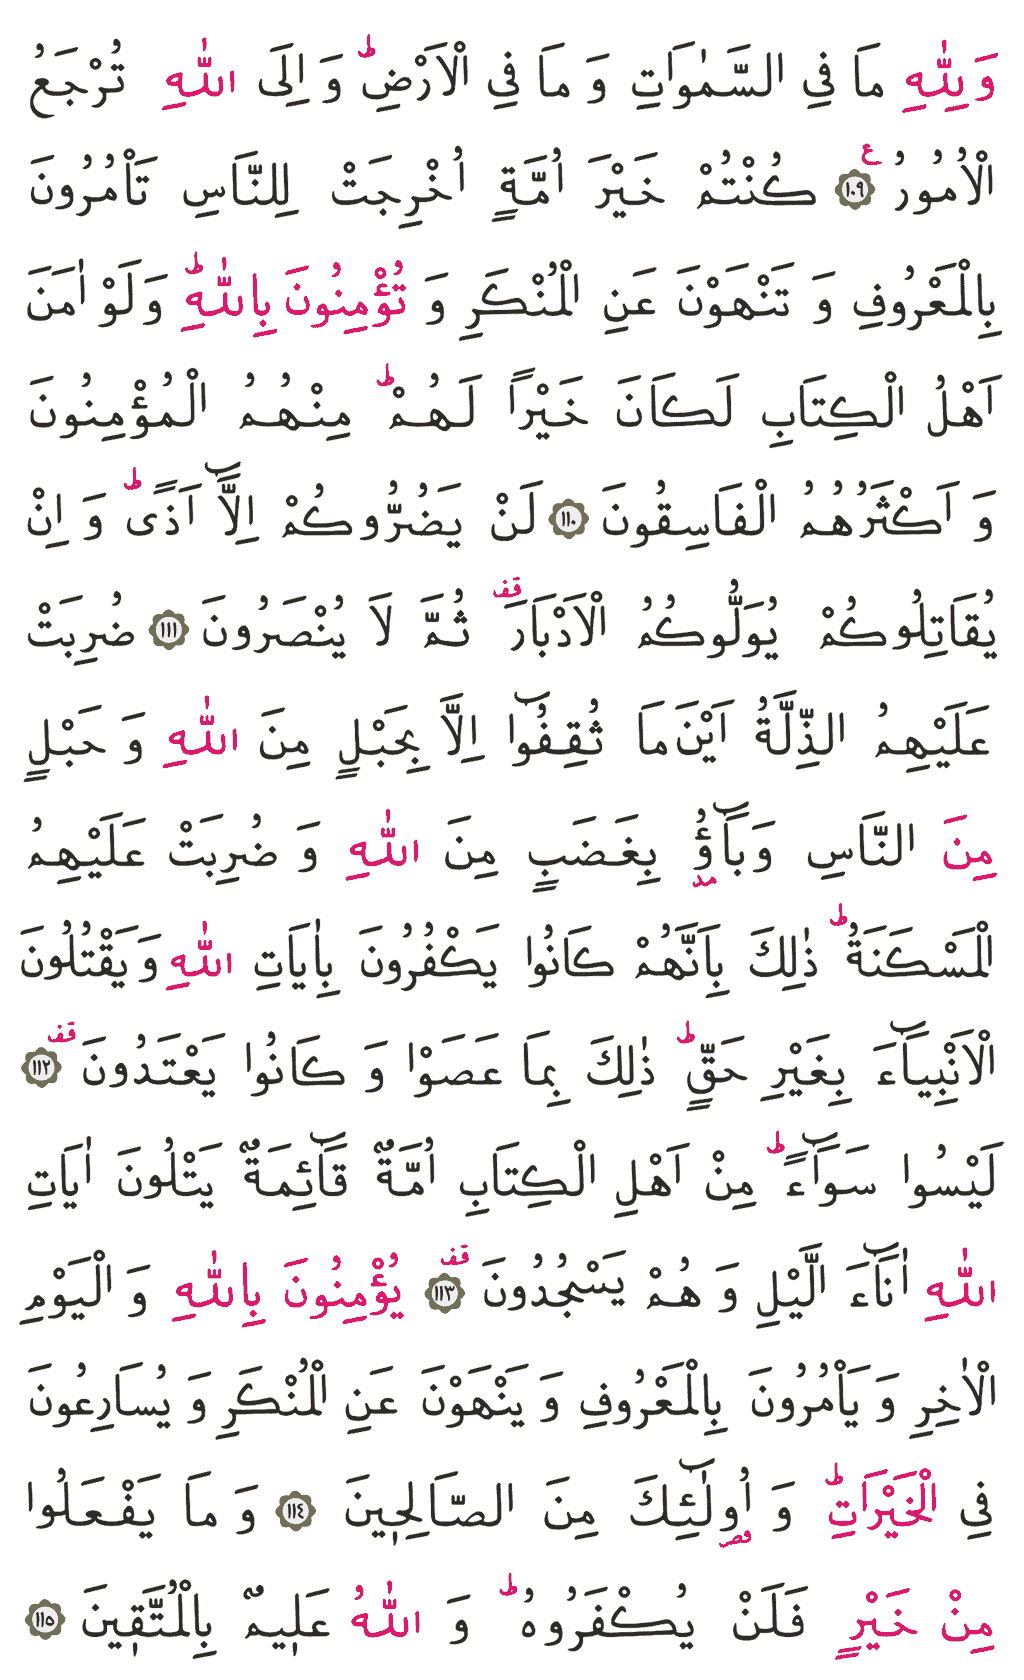 وَ لِلّٰهِ مَا فِي السَّمٰوَاتِ وَ مَا فِي الْاَرْضِ ؕ وَ اِلَى اللّٰهِ تُرْجَعُ
الْاُمُورُ ع ﴿١٠٩﴾ كُنْتُمْ خَيْرَ اُمَّةٍ اُخْرِجَتْ لِلنَّاسِ تَاْمُرُونَ
بِالْمَعْرُوفِ وَ تَنْهَوْنَ عَنِ الْمُنْكَرِ وَ تُؤْمِنُونَ بِاللّٰهِ ؕ وَ لَوْ اٰمَنَ
اَهْلُ الْكِتَابِ لَكَانَ خَيْرًا لَهُمْ ؕ مِنْهُمُ الْمُؤْمِنُونَ
وَ اَكْثَرُهُمُ الْفَاسِقُونَ ﴿١١٠﴾ لَنْ يَضُرُّوكُمْ اِلَّٓا اَذًى ؕ وَ اِنْ
يُقَاتِلُوكُمْ يُوَلُّوكُمُ الْاَدْبَارَ قف ثُمَّ لَا يُنْصَرُونَ ﴿١١١﴾ ضُرِبَتْ
عَلَيْهِمُ الذِّلَّةُ اَيْنَ مَا ثُقِفُٓوا اِلَّا بِحَبْلٍ مِنَ اللّٰهِ وَ حَبْلٍ
مِنَ النَّاسِ وَ بَٓاؤُ مد بِغَضَبٍ مِنَ اللّٰهِ وَ ضُرِبَتْ عَلَيْهِمُ
الْمَسْكَنَةُ ؕ ذٰلِكَ بِاَنَّهُمْ كَانُوا يَكْفُرُونَ بِاٰيَاتِ اللّٰهِ وَ يَقْتُلُونَ
الْاَنْبِيَٓاءَ بِغَيْرِ حَقٍّ ؕ ذٰلِكَ بِمَا عَصَوْا وَ كَانُوا يَعْتَدُونَ قف ﴿١١٢﴾
لَيْسُوا سَوَٓاءً ؕ مِنْ اَهْلِ الْكِتَابِ اُمَّةٌ قَٓائِمَةٌ يَتْلُونَ اٰيَاتِ
اللّٰهِ اٰنَٓاءَ الَّيْلِ وَ هُمْ يَسْجُدُونَ قف ﴿١١٣﴾ يُؤْمِنُونَ بِاللّٰهِ وَ الْيَوْمِ
الْاٰخِرِ وَ يَاْمُرُونَ بِالْمَعْرُوفِ وَ يَنْهَوْنَ عَنِ الْمُنْكَرِ وَ يُسَارِعُونَ
فِي الْخَيْرَاتِ ؕ وَ اُولٰٓئِكَ قصر مِنَ الصَّالِحٖينَ ﴿١١٤﴾ وَ مَا يَفْعَلُوا
مِنْ خَيْرٍ فَلَنْ يُكْفَرُوهُ ؕ وَ اللّٰهُ عَلٖيمٌ بِالْمُتَّقٖينَ ﴿١١٥﴾